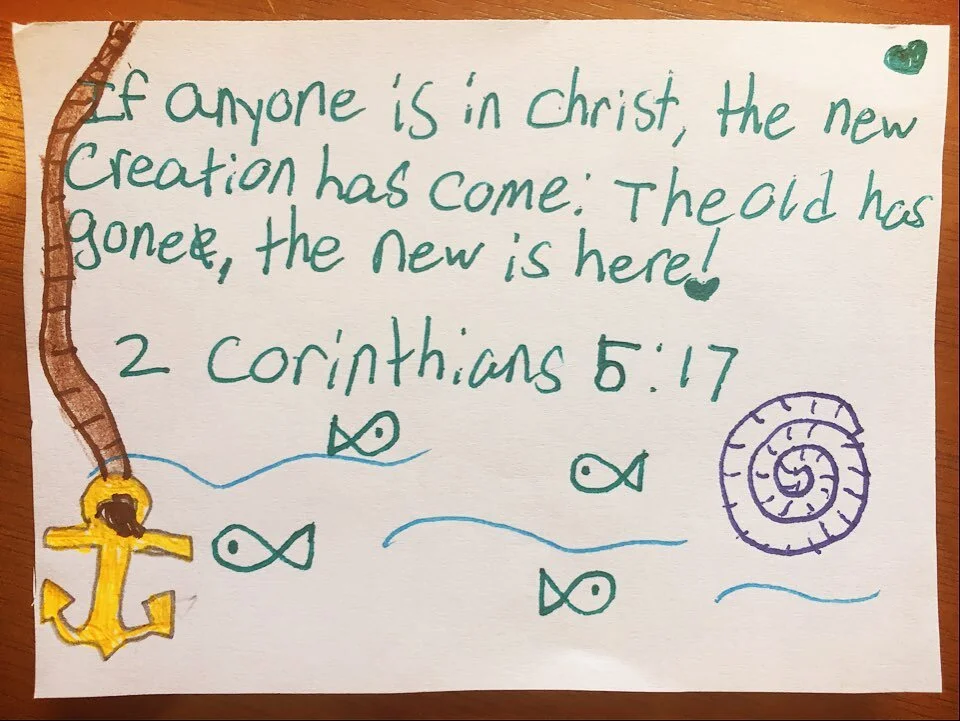 If anyone is in Christ, the new
Creation has come: The old has
gone, the new is here!
2 Corinthians 5:17